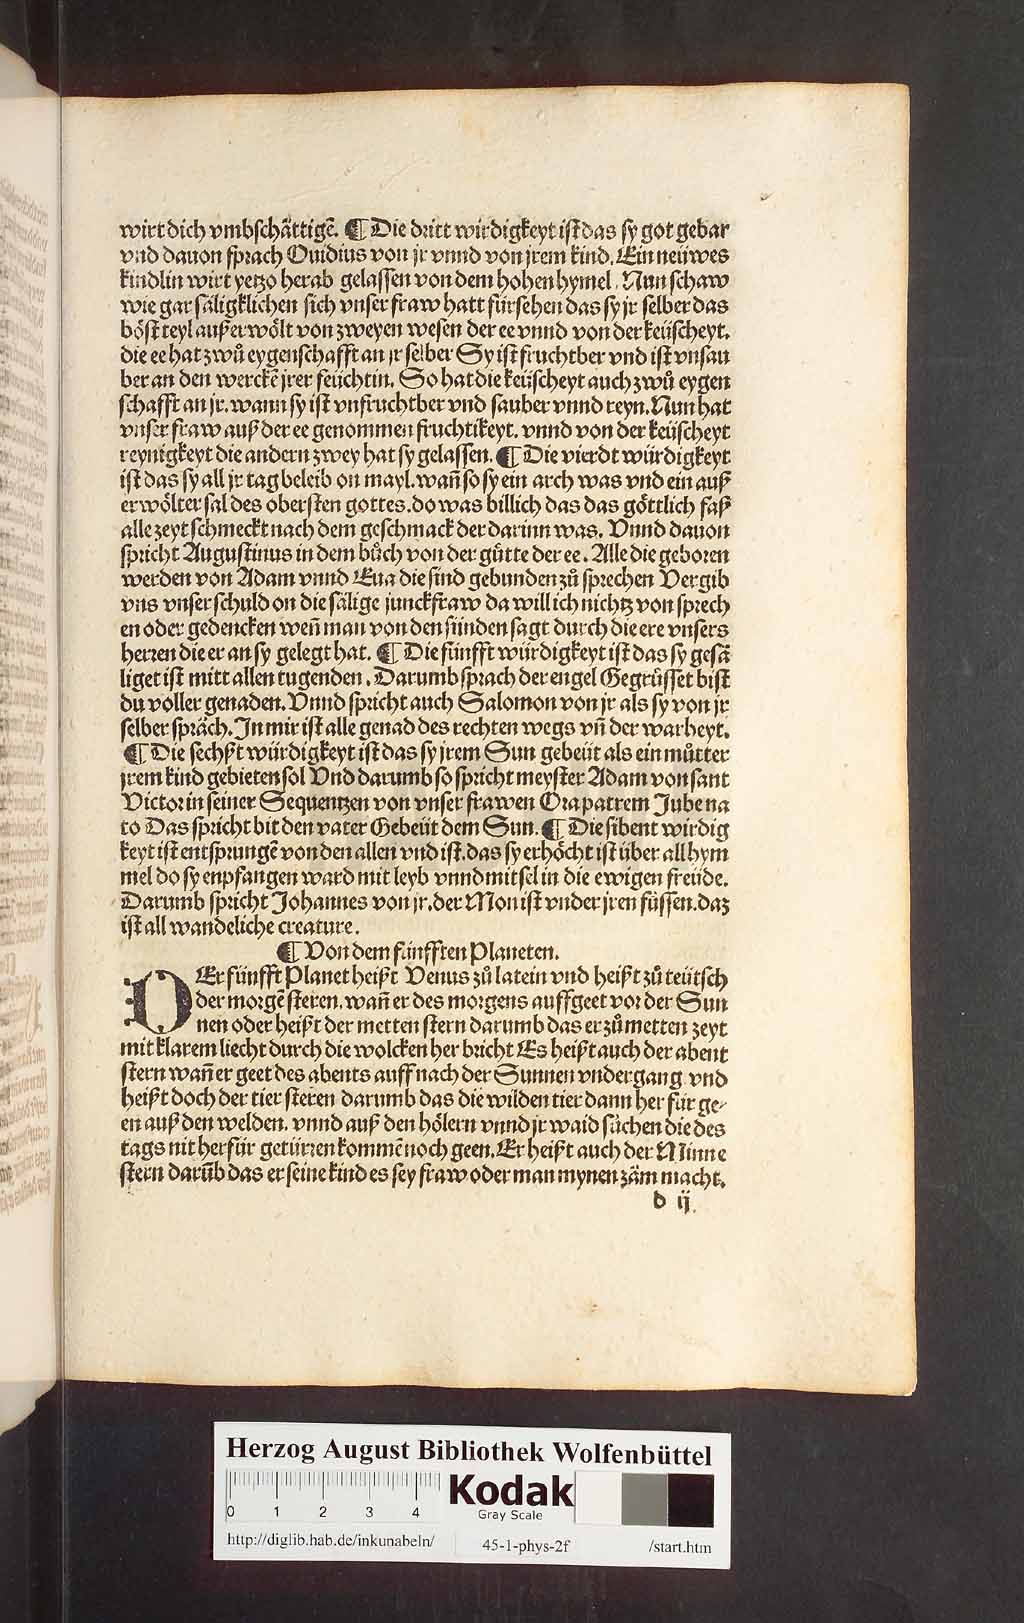 wirt dich vmbschättigē. ¶ Die dritt wirdigkeyt ist das sy got gebar
vnd dauon sprach Ouidius von jr vnnd von jrem kind. Ein neüwes
kindlin wirt yetzo herab gelassen von dem hohen hymel. Nun schaw
wie gar säligklichen sich vnser fraw hatt fürsehen das sy jr selber das
böst teyl außerwölt von zweyen wesen der ee vnnd von der keüscheyt.
die ee hat zwů eygenschafft an jr selber Sy ist fruchtber vnd ist vnsau
ber an den werckē jrer feüchtin. So hat die keüscheyt auch zwů eygen
schafft an jr. wann sy ist vnfruchtber vnd sauber vnnd reyn. Nun hat
vnser fraw auß der ee genommen fruchtikeyt. vnnd von der keüscheyt
reynigkeyt die andern zwey hat sy gelassen. ¶ Die vierdt würdigkeyt
ist das sy all jr tag beleib on mayl. wañ so sy ein arch was vnd ein auß
erwölter sal des obersten gottes. do was billich das das göttlich faß
alle zeyt schmeckt nach dem geschmack der darinn was. Vnnd dauon
spricht Augustinus in dem bůch von der gůtte der ee. Alle die geboren
werden von Adam vnnd Eua die sind gebunden zů sprechen Vergib
vns vnser schuld on die sälige junckfraw da will ich nichtz von sprech
en oder gedencken weñ man von den sünden sagt durch die ere vnsers
herren die er an sy gelegt hat. ¶ Die fünfft würdigkeyt ist das sy gesä
liget ist mitt allen tugenden. Darumb sprach der engel Gegrüsset bist
du voller genaden. Vnnd spricht auch Salomon von jr als sy von jr
selber spräch. In mir ist alle genad des rechten wegs vñ der warheyt.
¶ Die sechßt würdigkeyt ist das sy jrem Sun gebeüt als ein můtter
jrem kind gebieten sol Vnd darumb so spricht meyster Adam von sant
Victor in seiner Sequentzen von vnser frawen Ora patrem Jube na
to Das spricht bit den vater Gebeüt dem Sun. ¶ Die sibent wirdig
keyt ist entsprungē von den allen vnd ist. das sy erhöcht ist über all hym
mel do sy enpfangen ward mit leyb vnnd mit sel in die ewigen freüde.
Darumb spricht Johannes von jr. der Mon ist vnder jren füssen. daz
ist all wandeliche creature.
¶ Von dem fünfften Planeten.
DEr fünfft Planet heißt Venus zů latein vnd heißt zů teütsch
der morgē steren. wañ er des morgens auffgeet vor der Sun
nen oder heißt der metten stern darumb das er zů metten zeyt
mit klarem liecht durch die wolcken her bricht Es heißt auch der abent
stern wañ er geet des abents auff nach der Sunnen vndergang vnd
heißt doch der tier steren darumb das die wilden tier dann her für ge⸗
en auß den welden. vnnd auß den hölern vnnd jr waid sůchen die des
tags nit herfür getürren kommē noch geen. Er heißt auch der Minne
stern darūb das er seine kind es sey fraw oder man mynen zäm macht.
d ij
Herzog August Bibliothek Wolfenbüttel
0 1 2 3 4
Kodak
Gray Scale
http://diglib.hab.de/inkunabeln/ 45-1-phys-2f /start.htm